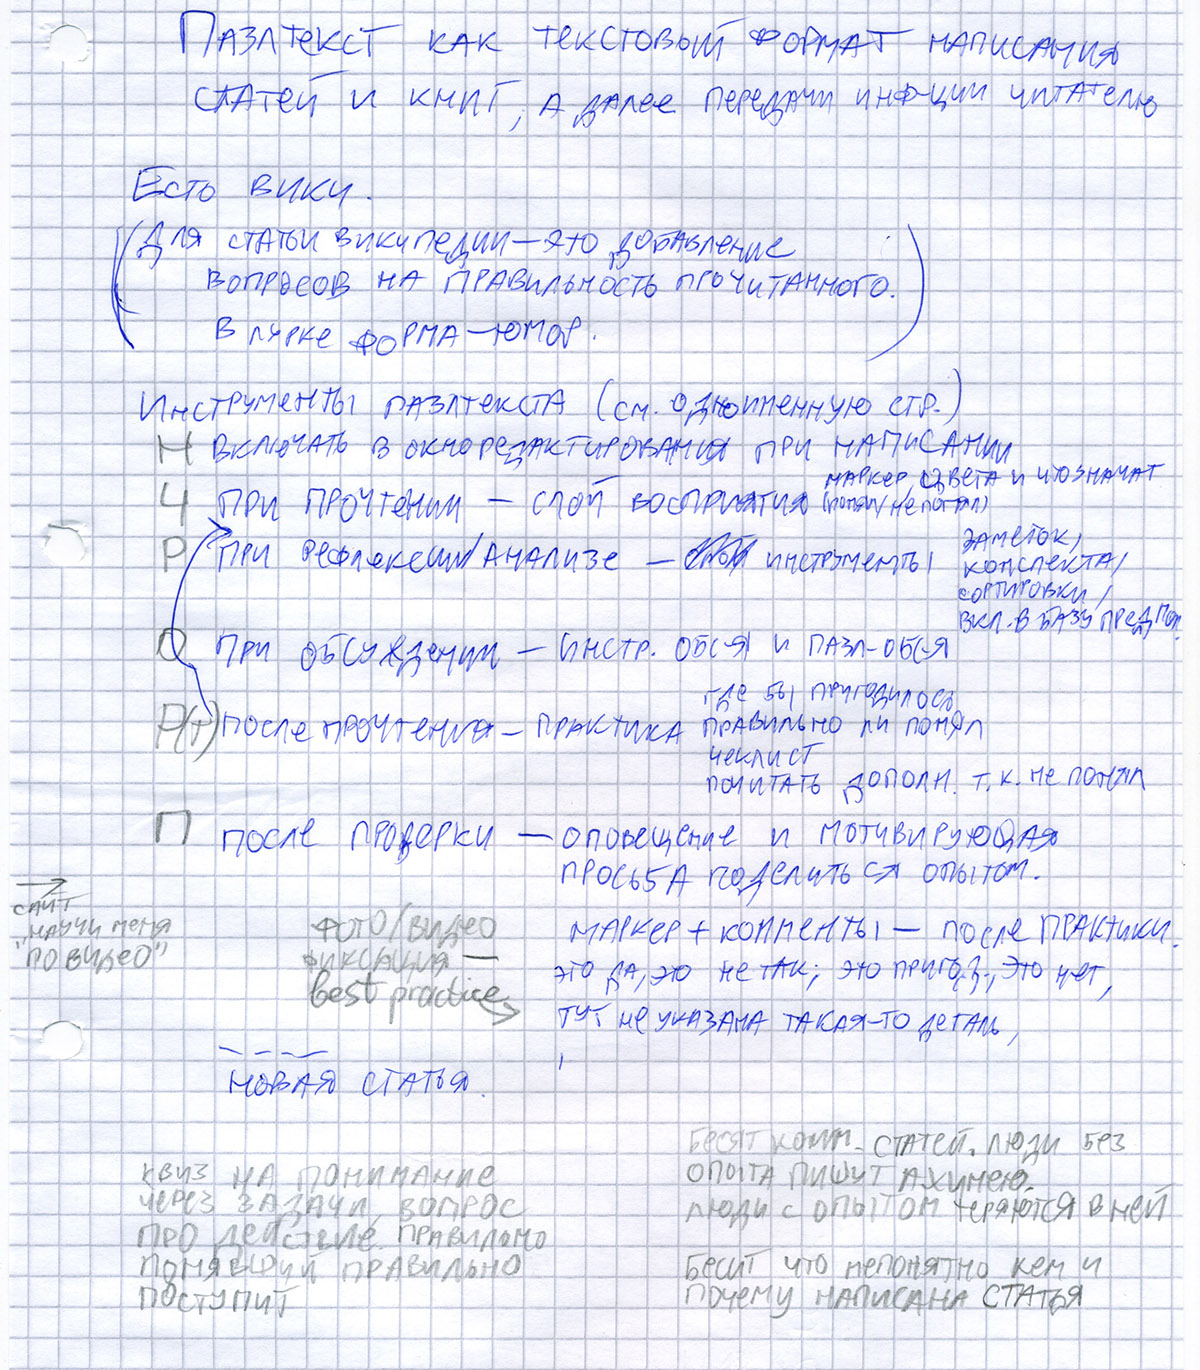 Пазлтекст как текстовый формат написания
статей и книг, а далее передачи инф-ции читателю
Есть вики.
(Для статьи википедии — это добавление
вопросов на правильность прочитанного.
В лурке форма — юмор.)
Инструменты пазлтекста (см. одноименную стр.)
Н включать в окно редактирования при написании
Ч при прочтении — слой восприятия маркер, цвета и что значат
(понял/не понял)
Р при рефлексии/анализе — инструменты заметок,
конспекта,
сортировки,
вкл. в базу предпол.
О при обсуждении — инстр. обс-я и пазл-обс-я
Р(т) после прочтения — практика где бы пригодилось
правильно ли понял
чеклист
почитать дополн. т.к. не понял
П после проверки — оповещение и мотивирующая
просьба поделиться опытом.
→
сайт
"научи меня
по видео"
фото/видео
фиксация —
best practice
маркер + комменты — после практики.
это да, это не так; это пригод., это нет,
тут не указана такая-то деталь,
новая статья.
квиз на понимание
через задачи, вопрос
про действие. правильно
понявший правильно
поступит
Бесят комм. статей. люди без
опыта пишут ахинею.
люди с опытом теряются в ней
Бесит что непонятно кем и
почему написана статья